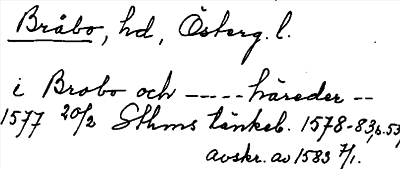 Bråbo, hd, Österg. l.
i Brobo och ----- häreder --
1577 20/2 Sthms tänkeb. 1578-83, s. 53
avskr. av 1583 7/1.